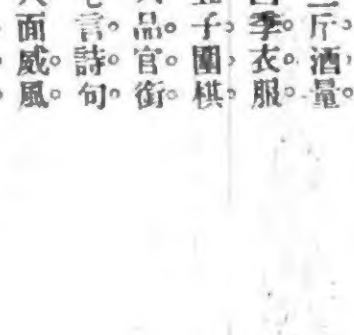 斤酒量
季衣服
子圍棋
品官銜
言詩句
面威風